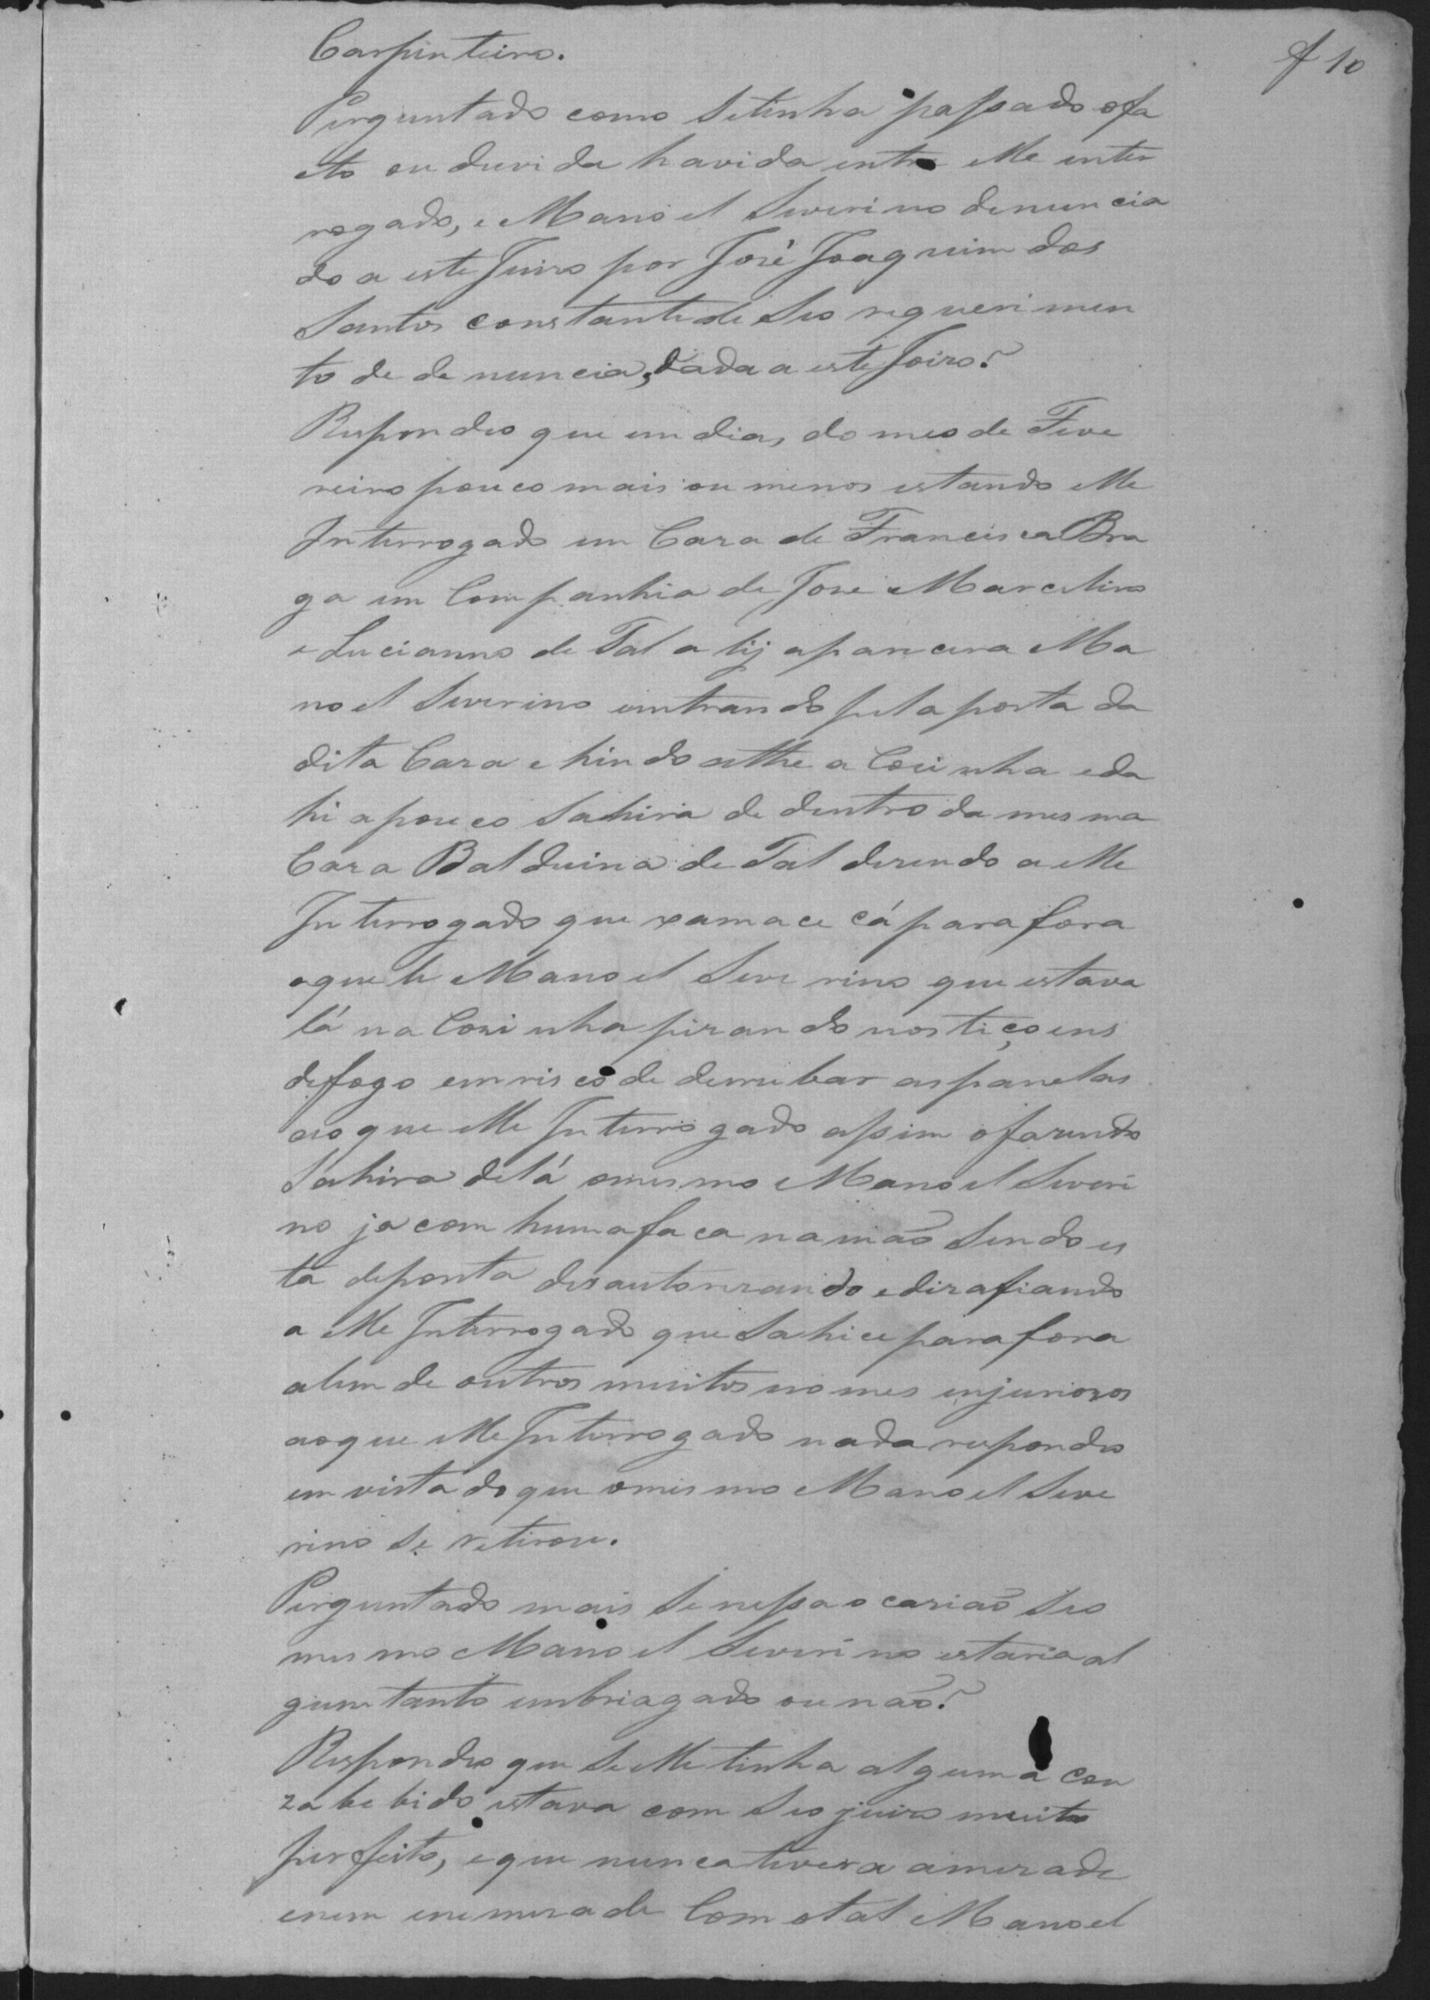 f 10
Carpinteiro.
Perguntado como Setinha passado ofa
cto ou duvida havida entre elle inter
rogado, e Manoel Severino denuncia
do a este Juizo por José Joaquim dos
Santos constante de Seo requerimen
to de denuncia, dada a este Joizo?
Respondeo que em dia, do mes de Feve
reiro pouco mais ou menos estando elle
Interrogado em Caza de Francisca Bra
ga em Companhia de Jose Marcelino
e Lucianno de Tal alij aparecera Ma
noel Severino emtrando pela porta da
dita Caza e hindo atthe a Cosinha eda
hi apouco Sahira de dentro da mesma
Caza Balduina de Tal dizendo a elle
Interrogado que xamace cá para fora
aquele Manoel Severino que estava
lá na Cozinha pizando nos tiçoens
defogo em risco de derrubar as panelas
ao que elle Interrogado assim ofazendo
Sahira delá omesmo Manoel Severi
no ja com huma faca na mão Sendo es
ta deponta desautorizando edizafiando
a elle Interrogado que Sahice para fora
alem de outros muitos nomes injuriozos
aoque elle Interrogado nada respondeo
em vista doque omesmo Manoel Seve
rino Se retirou.
Perguntado mais Se nessa ocazião Seo
mesmo Manoel Severino estaria al
gum tanto embriagado ou não?
Respondeo que Se elle tinha alguma cou
za bebido estava com Seo juizo muito
perfeito, eque nunca tivera amizade
enem enemizade Com otal Manoel